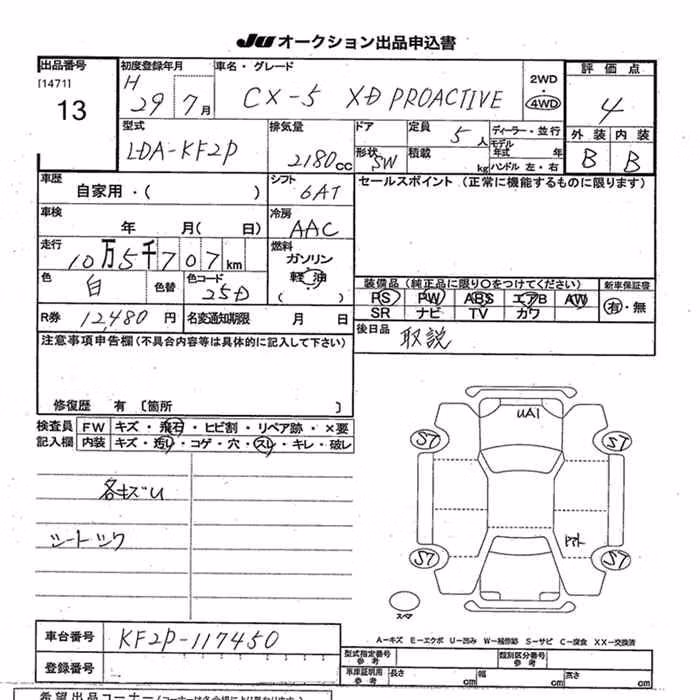 JU オークション出品申込書
出品番号 初度登録年月 車名・グレード 2WD 評価点
[1471] H 29 7月 CX-5 XD PROACTIVE ・ 4WD 4
13
型式 排気量 ドア 定員 5人 ディーラー・並行 外装 内装
LDA-KF2P 2180cc 形状 SW 積載 kg モデル年式 年 B B
ハンドル 左・右
車歴 自家用・( ) シフト 6AT セールスポイント (正常に機能するものに限ります)
車検 年 月( 日) 冷房 AAC
走行 10万5千707km 燃料 ガソリン
軽油
( )
色 白 色替 色コード 25D 装備品(純正品に限り○をつけてください) 新車保証書
PS PW ABS エアB AW 有・無
R券 12,480円 名変通知期限 月 日 SR ナビ TV カワ
注意事項申告欄(不具合内容等は具体的に記入して下さい) 後日品 取説
修復歴 有 〔箇所 〕
検査員 FW キズ・飛石・ヒビ割・リペア跡・×要
記入欄 内装 キズ・汚レ・コゲ・穴・スレ・キレ・破レ
UA1
ST ST
各キズU
シートシワ
ST ST
スペア
A−キズ E−エクボ U−凹み W−補修跡 S−サビ C−腐食 XX−交換済
車台番号 KF2P-117450
型式指定番号 参考 類別区分番号 参考
登録番号 車庫証明用 参考 長さ cm 幅 cm 高さ cm
希望出品コーナー